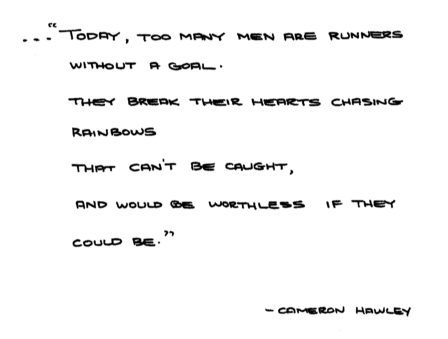 ..."TODAY, TOO MANY MEN ARE RUNNERS
WITHOUT A GOAL.
THEY BREAK THEIR HEARTS CHASING
RAINBOWS
THAT CAN'T BE CAUGHT,
AND WOULD BE WORTHLESS IF THEY
COULD BE."
- CAMERON HAWLEY